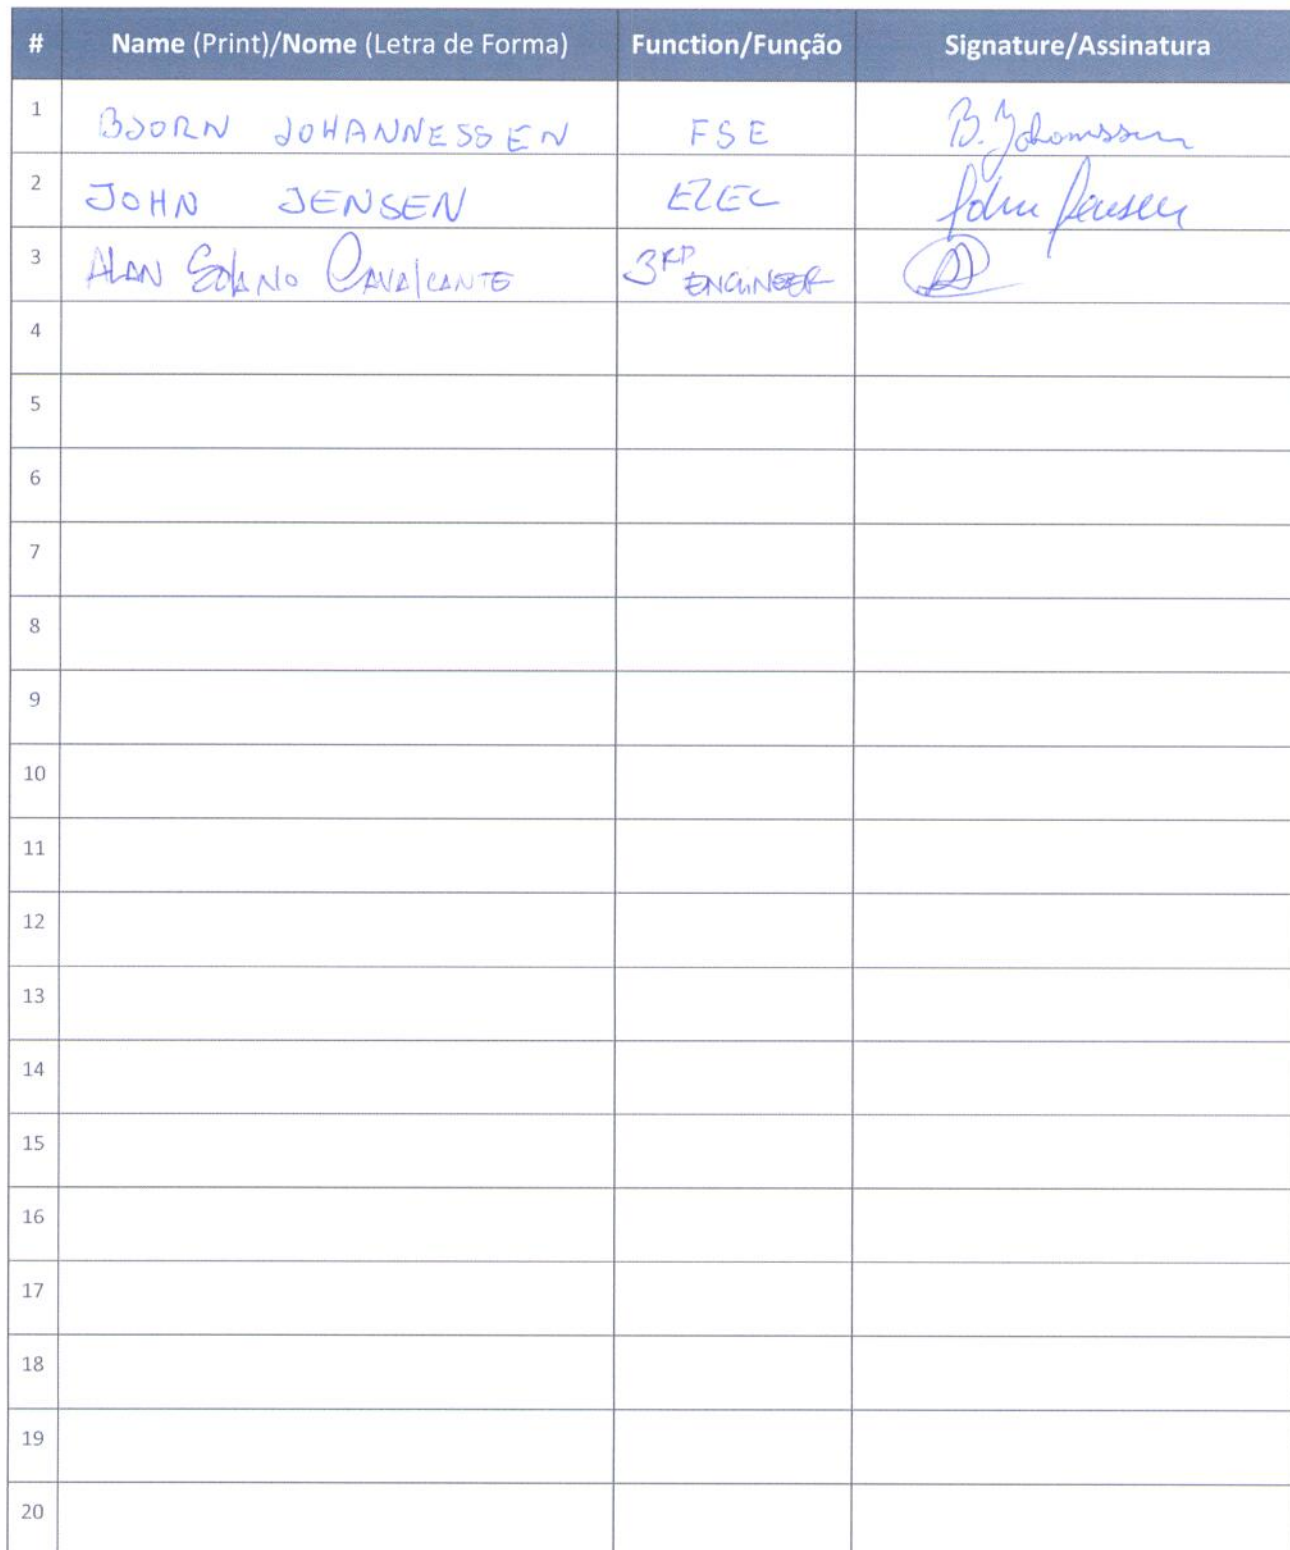 # Name (Print)/Nome (Letra de Forma) Function/Função Signature/Assinatura
1 BJORN JOHANNESSEN FSE B. Johannssen
2 JOHN JENSEN John Jensen
3 ALAN SOLANO CAVALCANTE 3RD ENGINEER
4
5
6
7
8
9
10
11
12
13
14
15
16
17
18
19
20